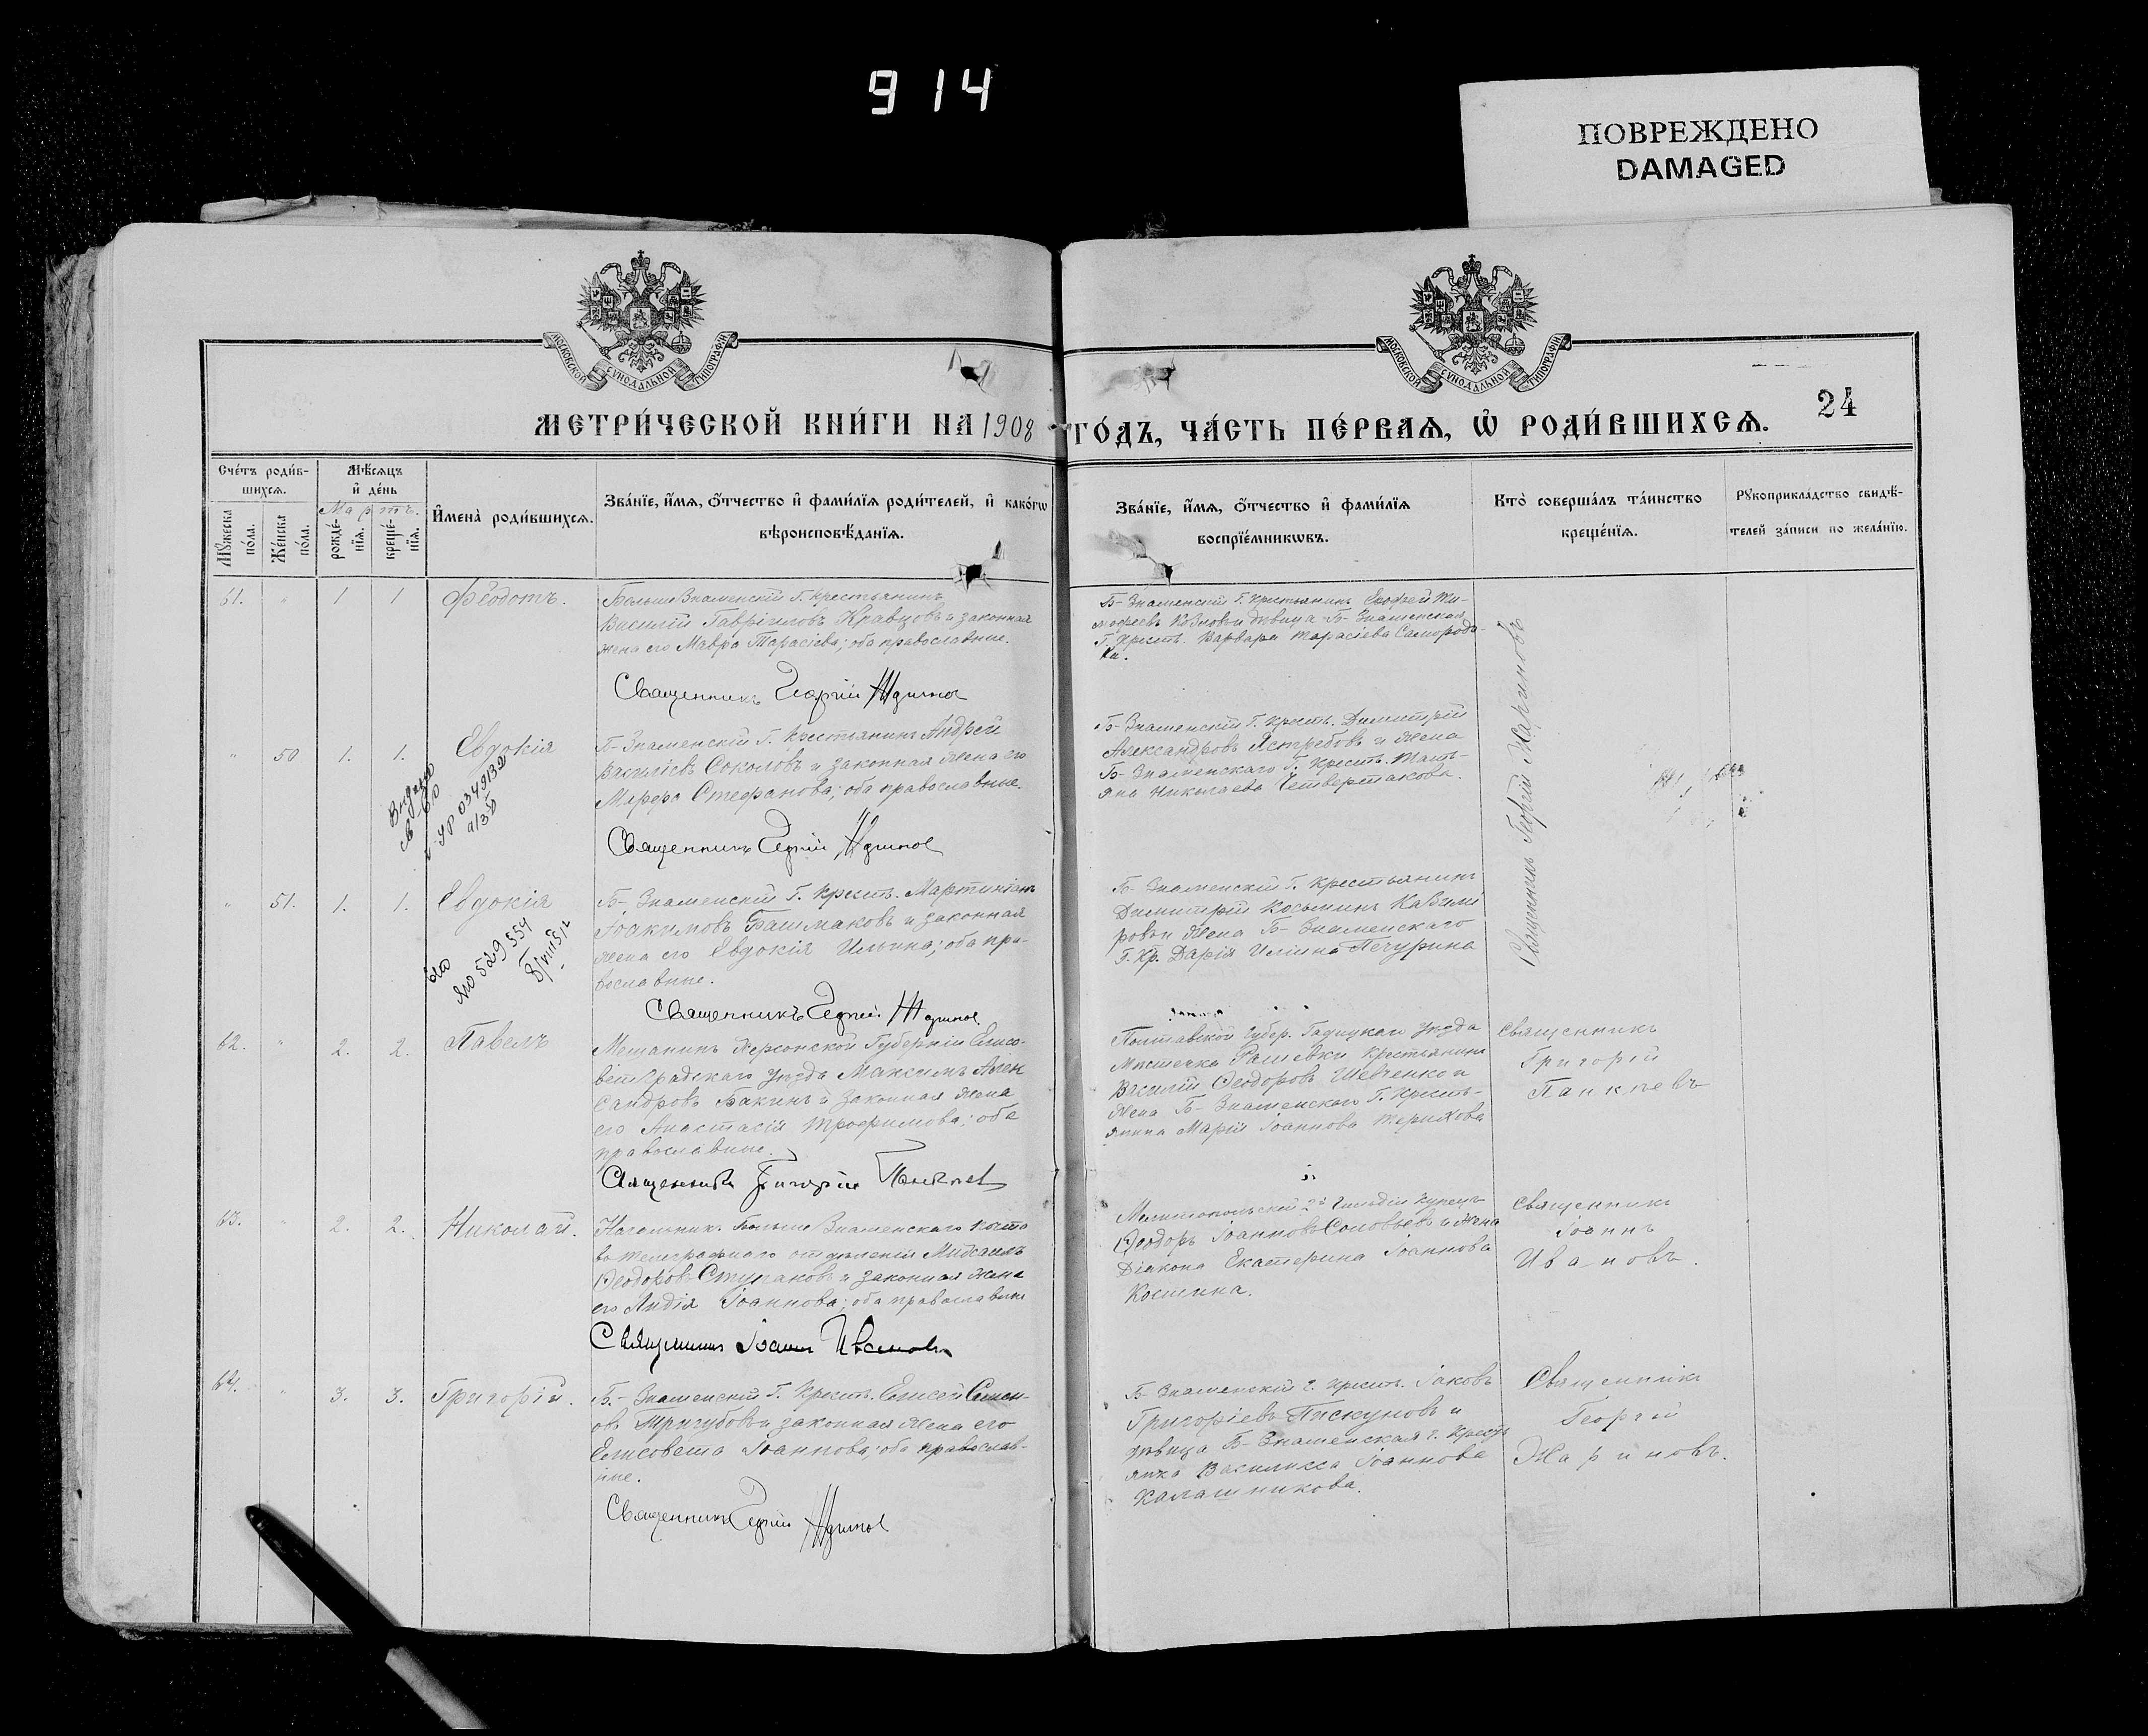 914
ПОВРЕЖДЕНО
DAMAGED
МОСКОВСКОЙ СѴНОДАЛЬНОЙ ТИПОГРАФІИ
МОСКОВСКОЙ СѴНОДАЛЬНОЙ ТИПОГРАФІИ
МЕТРИ́ЧЕСКОЙ КНИ́ГИ НА 1908 ГО́ДЪ, ЧА́СТЬ ПЕ́РВАѦ, Ѡ РОДИ́ВШИХСѦ.
24
Сче́тъ роди́в-
шихсѧ.
Мꙋ́жеска по́ла.
Же́нска по́ла.
Мѣ́сѧцъ
и҆ де́нь
Мартъ.
рожде́-
нїѧ.
креще́-
нїѧ.
И҆мена̀ роди́вшихсѧ.
Зва́нїе, и҆́мѧ, ѻ҆́тчество и҆ фами́лїѧ роди́телей, и҆ како́гѡ
вѣроисповѣ́данїѧ.
Зва́нїе, и҆́мѧ, ѻ҆́тчество и҆ фами́лїѧ
воспрїе́мникѡвъ.
Кто̀ соверша́лъ та́инство
креще́нїѧ.
Рꙋкоприкла́дство свидѣ́-
телей за́писи по жела́нїю.
61. " 1 1 Ѳеодотъ.
Больше Знаменскій Г. крестьянинъ
Василій Гавріиловъ Кравцовъ и законная
жена его Мавра Тарасіева; оба православные.
Священникъ Георгій
Б-Знаменскій Г. Крестьянинъ Ти-
мофеевъ Козловъ и девица Б-Знаменская
Г. Крест. Варвара Тарасіева Самород-
ка.
Священникъ Георгій Мариновъ
" 50 1. 1. Евдокія
Б-Знаменскій Г. Крестьянинъ Андрей
Василіевъ Соколовъ и законная жена его
Марфа Стефанова; оба православные.
Священникъ Георгій
Б-Знаменскій Г. Крест. Димитрій
Александровъ Ястребовъ и жена
Б-Знаменскаго Г. Крест. Тать-
яна Николаева Четвертакова.
Выдано
св во
ЯР 0349132
" 51. 1. 1. Евдокія
Б-Знаменскій Г. Крест. Мартиніанъ
Іоакимовъ Башмаковъ и законная
жена его Евдокія Ильина; оба пра-
вославные.
Священникъ Георгій
Б-Знаменскій Г. Крестьянинъ
Димитрій Косьминъ Казими
ровъ и жена Б-Знаменскаго
Г. Кр. Дарія Иліина Печурина
529554
62. " 2. 2. Павелъ
Мещанинъ Херсонской Губерніи Елисо-
ветградскаго уезда Максимъ Алек
сандровъ Бакинъ и законная жена
его Анастасія Трофимова; оба
православные.
Священникъ Григорій
Полтавской Губер. Гадяцкаго уезда
местечка Рашевки крестьянинъ
Василій Ѳеодоровъ Шевченко и
жена Б-Знаменскаго Г. Кресть-
янина Марія Іоаннова
Священникъ
Григорій
63. " 2. 2. Николай.
Начальникъ Больше Знаменскаго почто
во телеграфнаго отделенія
Ѳеодоровъ и законная жена
его Лидія Іоаннова; оба православные
Священникъ Іоаннъ Ивановъ
Мелитопольскій 2й Гильдіи купецъ
Ѳеодоръ Іоанновъ Соловьевъ и жена
Діакона Екатерина Іоаннова
Костина.
Священникъ
Іоаннъ
Ивановъ.
64. " 3. 3. Григорій.
Б.-Знаменскій Г. Крест. Елисей Симен-
овъ Тригубовъ и законная жена его
Елисовета Іоаннова; оба православ-
ные.
Священникъ Георгій
Б-Знаменскій г. крест. Іаковъ
Григоріевъ Пискуновъ и
девица Б-Знаменская г. Кресть
янка Василисса Іоаннова
Калашникова.
Священникъ
Георгій
Мариновъ.